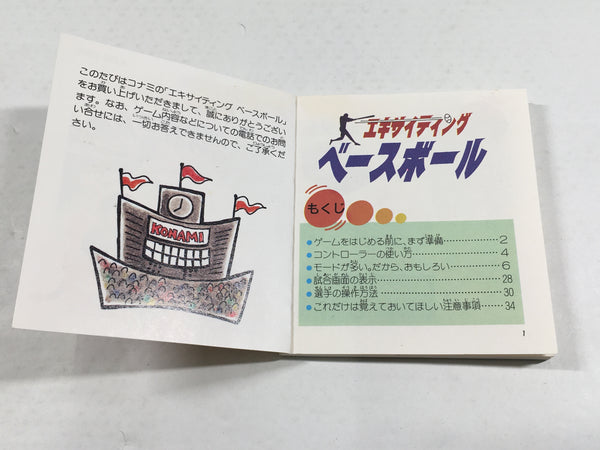 このたびはコナミの"エキサイティング ベースボール"
をお買い上げいただきまして、誠にありがとうござい
ます。なお、ゲーム内容などについての電話でのお問
い合せには、一切お答えできませんので、ご了承くだ
さい。
KONAMI
エキサイティング
ベースボール
もくじ
●ゲームをはじめる前に、まず準備…………2
●コントローラーの使い方…………4
●モードが多い。だから、おもしろい…………6
●試合画面の表示…………28
●選手の操作方法…………30
●これだけは覚えておいてほしい注意事項…………34
1